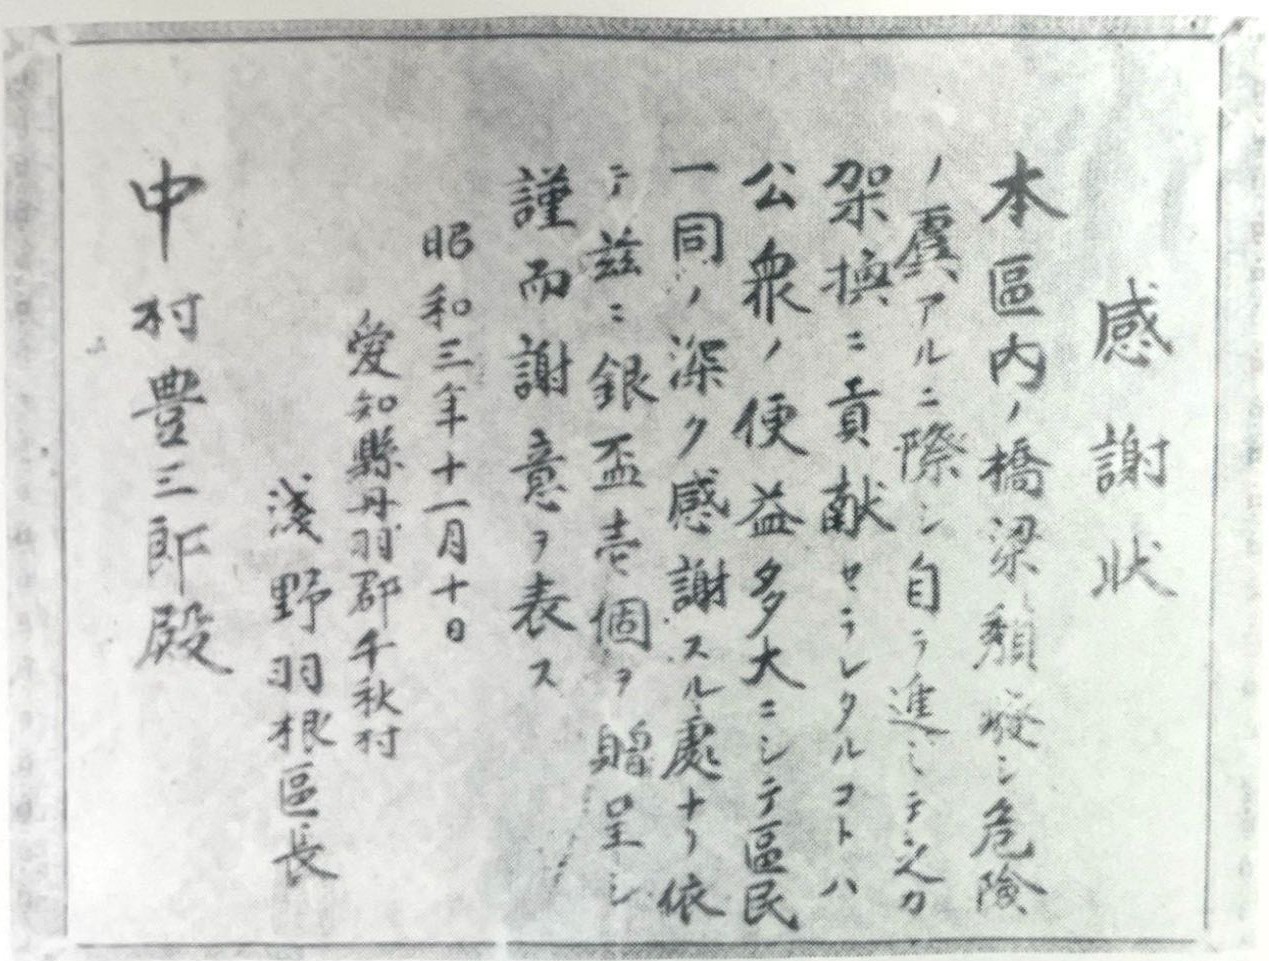 感謝狀
本區内ノ橋梁頽廢シ危險
ノ虞アルニ際シ自ラ進ミテ之カ
架換ニ貢献セラレタルコトハ
公衆ノ便益多大ニシテ區民
一同ノ深ク感謝スル處ナリ依
テ茲ニ銀盃壱個ヲ贈呈シ
謹而謝意ヲ表ス
昭和三年十一月十日
愛知縣丹羽郡千秋村
浅野羽根區長
中村豊三郎殿